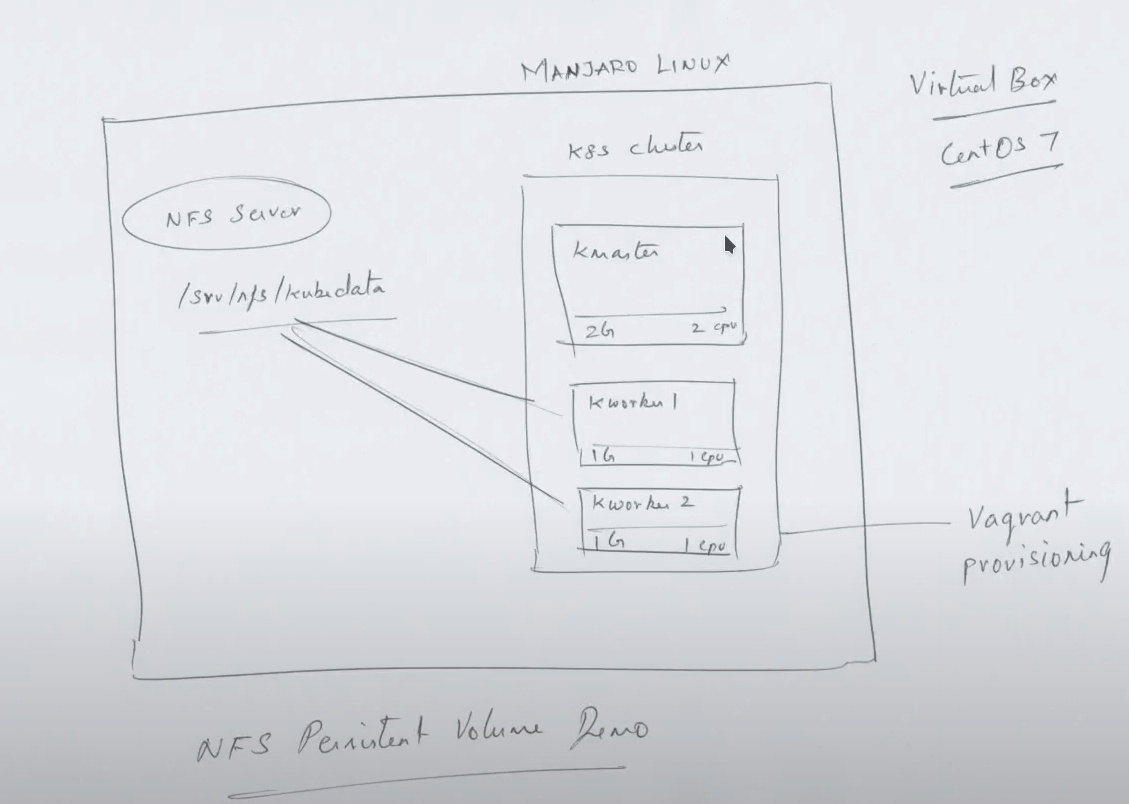 MANJARO LINUX
Virtual Box
CentOS 7
K8s cluster
NFS Server
/srv/nfs/kubedata
Kmaster
2G 2 cpu
Kworker 1
1G 1 cpu
Kworker 2
1G 1 cpu
Vagrant
provisioning
NFS Persistent Volume Demo